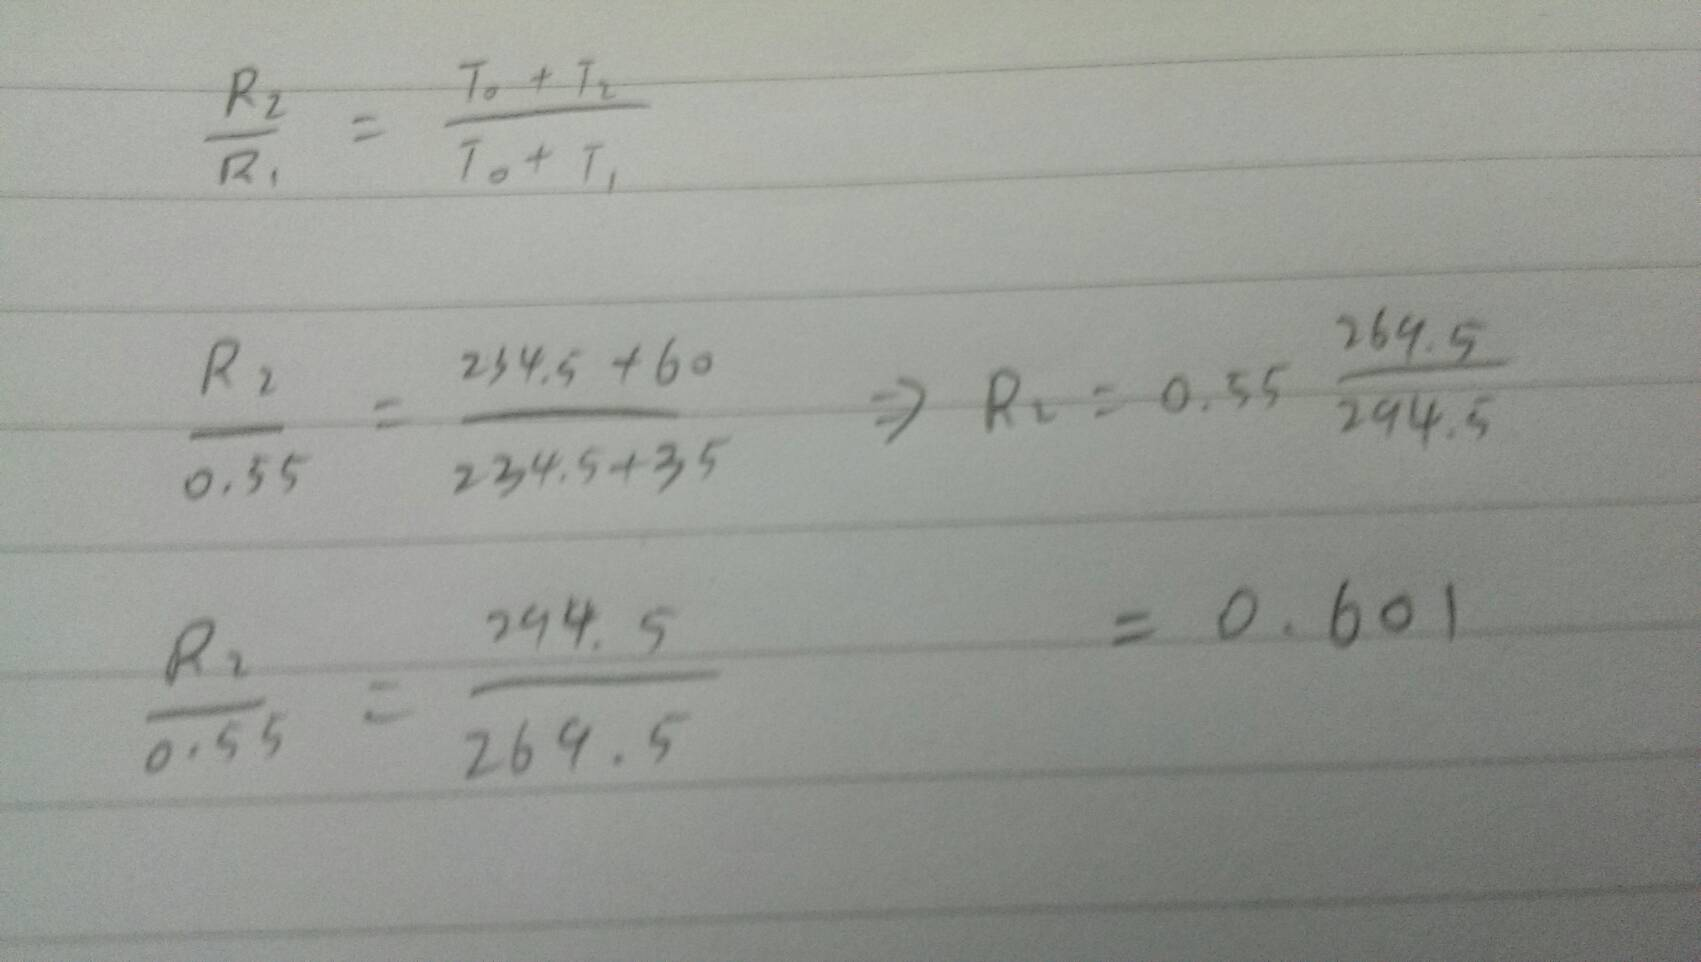 R₂/R₁ = (T₀ + T₂)/(T₀ + T₁)
R₂/0.55 = (234.5 + 60)/(234.5 + 35) ⇒ R₂ = 0.55 269.5/294.5
R₂/0.55 = 294.5/269.5
= 0.601